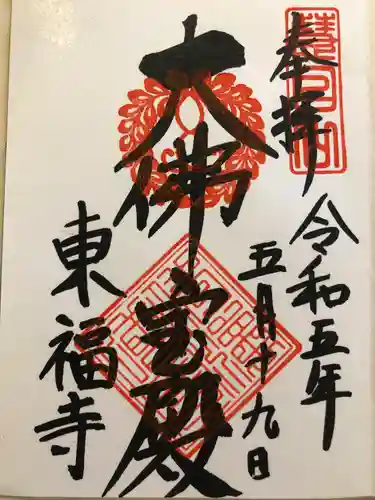 奉拝
令和五年
五月十九日
大佛宝殿
東福寺